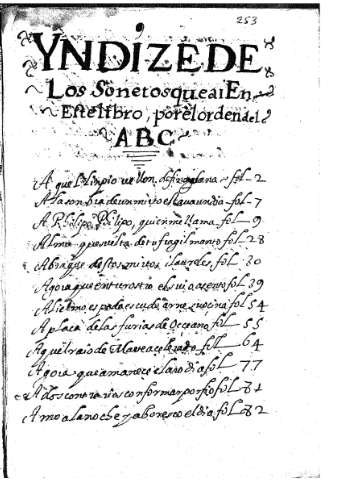 253
YNDIZE DE
Los Sonetos que ai En
Este libro, por el orden del
ABC
A que l limpio vellon de fol 2
A la sombra de un mirto estava un dia fol 7
A Philipo, Philipo, quien me llama fol 9
Alma que suelta de tu fragil manto fol 28
Abraçue destos mirtos i laureles, fol 30
Agora que en tu rostro el suio asento fol 39
Aliermo espada escudo arnes fol 54
Aplaca de las furias de Oceano fol 55
Aquel raio de Marte acelerado fol 64
Agora que amanece claro dia fol 77
A dos contrarios conformar porfio fol 81
Amo la noche y aboresco el dia fol 82